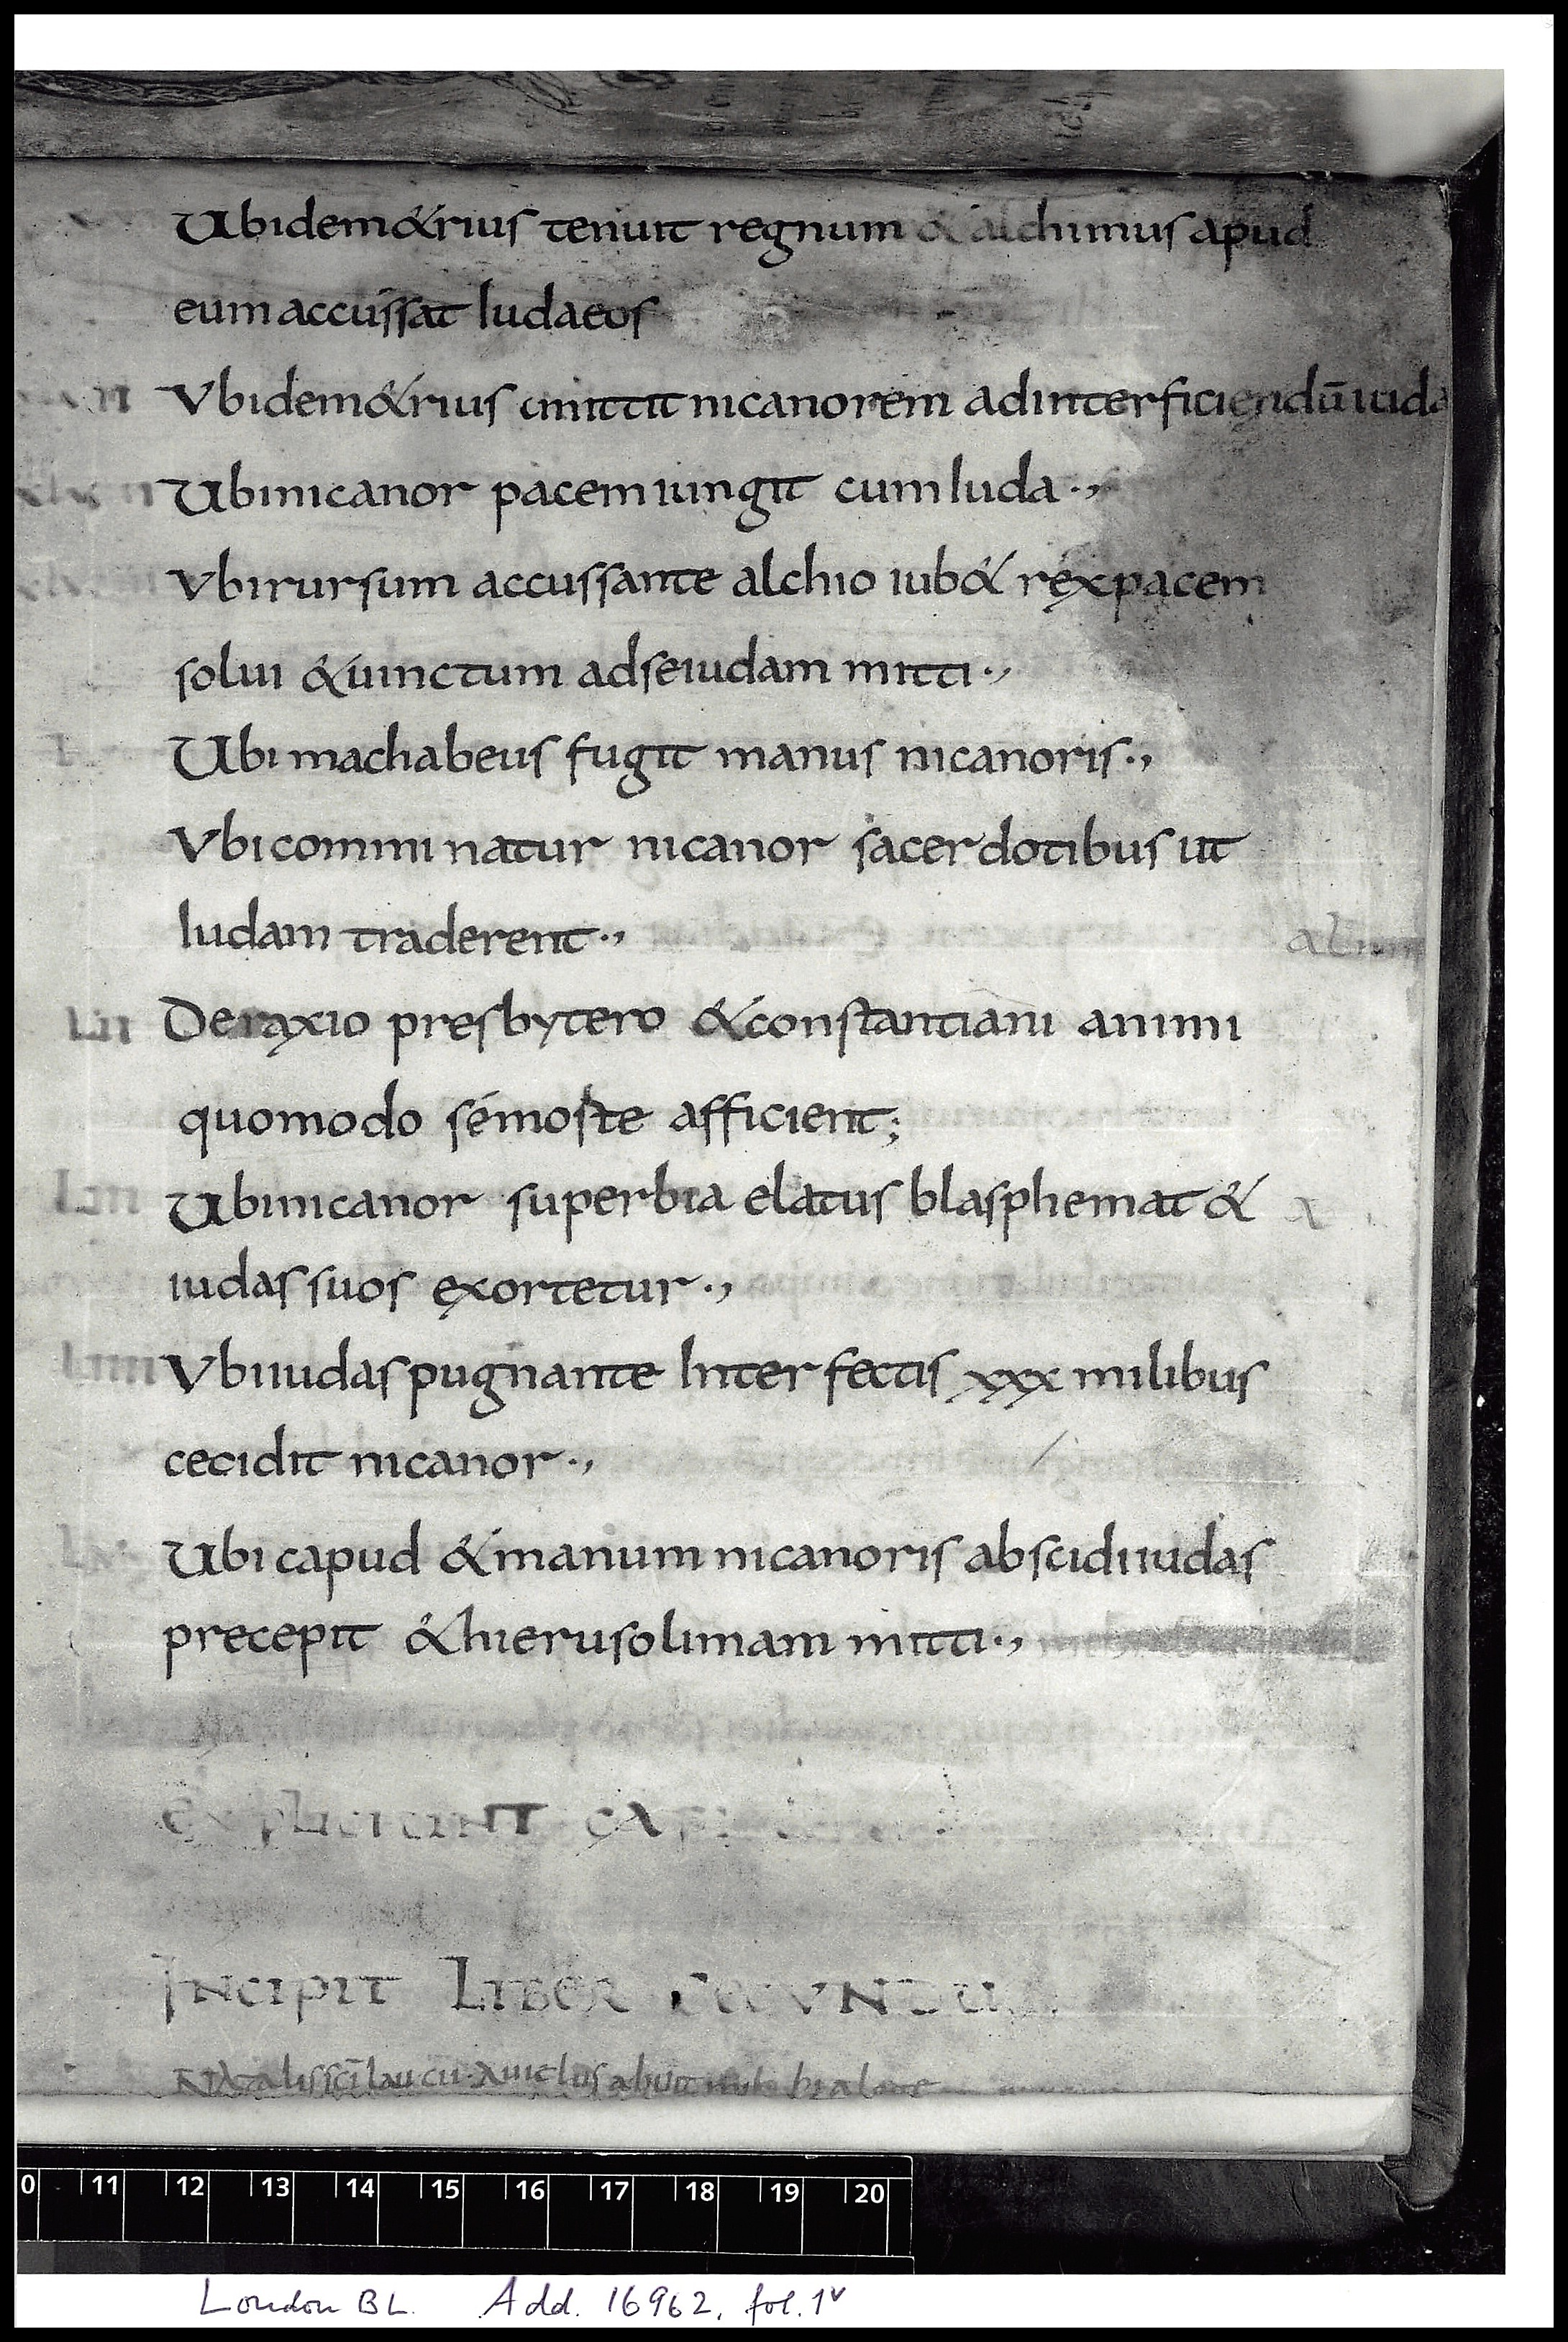 Ubidem&rius tenuit regnum & alchimus apud
eum accussat Iudaeos
Vbidem&rius mittit nicanorem adinterficiendū iuda
Ubinicanor pacem iungit cum Iuda .,
Vbi rursum accussante alchio iub& réx pacem
solui & uinctum adse iudam mitti .,
Ubi machabeus fugit manus nicanoris .,
Vbi comminatur nicanor sacerdotibus ut
Iudam traderent .,
LII De raxio presbytero & constantiam animi
quomodo sémoste afficient;
LIII Ubinicanor superbia elatus blasphemat &
iudas suos exortetur .,
LIIII Vbi iudas pugnante Interfectis xxx milibus
cecidit nicanor .,
Ubi capud & manum nicanoris abscidi iudas
precepit & hierusolimam mitti .,
EXPLICIUNT
INCIPIT LIBER SECVNDUS
11 12 13 14 15 16 17 18 19 20
London BL. Add. 16962, fol. 1v